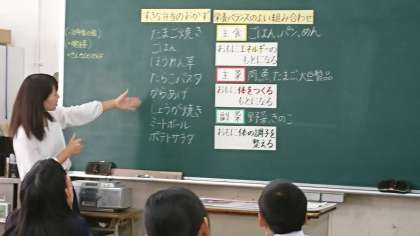 すきな弁当のおかず
たまご焼き
ごはん
ほうれん草
たらこパスタ
からあげ
しょうが焼き
ミートボール
ポテトサラダ
栄養バランスのよい組み合わせ
主食 ごはん、パン、めん
おもにエネルギーの
もとになる
主菜 肉、魚、たまご、大豆製品
おもに体をつくる
もとになる
副菜 野菜、きのこ
おもに体の調子を
整える